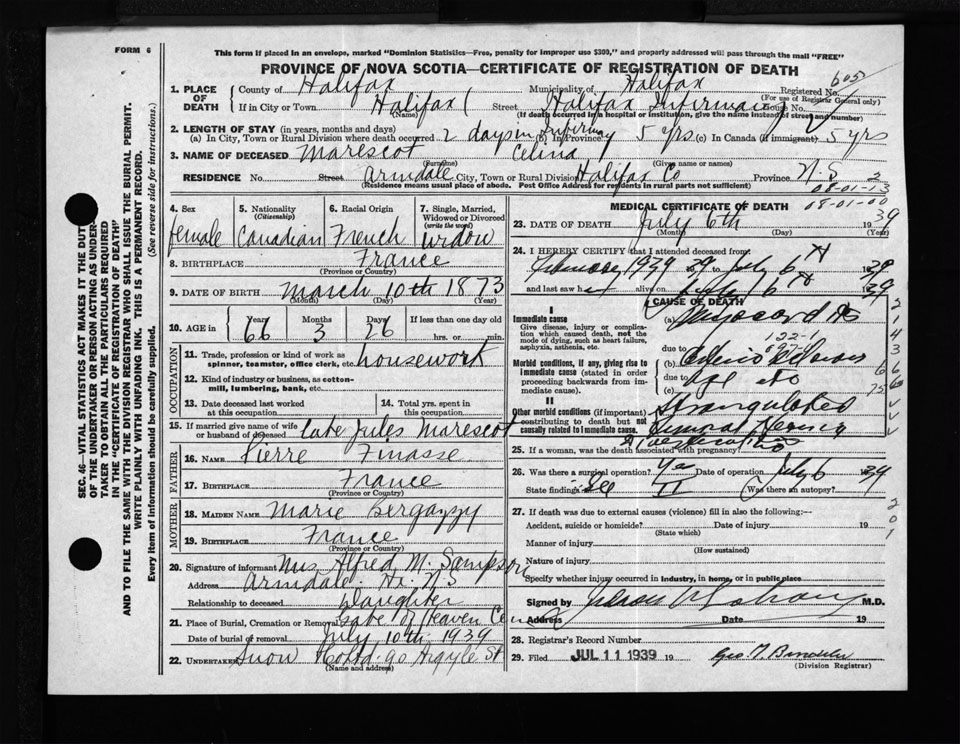 FORM 6
This form if placed in an envelope, marked "Dominion Statistics—Free, penalty for improper use $300," and properly addressed will pass through the mail "FREE"
PROVINCE OF NOVA SCOTIA—CERTIFICATE OF REGISTRATION OF DEATH
SEC. 46—VITAL STATISTICS ACT MAKES IT THE DUTY
OF THE UNDERTAKER OR PERSON ACTING AS UNDER-
TAKER TO OBTAIN ALL THE PARTICULARS REQUIRED
IN THE "CERTIFICATE OF REGISTRATION OF DEATH"
AND TO FILE THE SAME WITH THE DIVISION REGISTRAR WHO SHALL ISSUE THE BURIAL PERMIT.
WRITE PLAINLY WITH UNFADING INK. THIS IS A PERMANENT RECORD.
Every item of information should be carefully supplied. (See reverse side for instructions.)
1. PLACE OF DEATH County of Halifax Municipality of Halifax Registered No. 605
(For use of Registrar General only)
If in City or Town Halifax Street Halifax Infirmary House No.
(Name) (If death occurred in a hospital or institution, give the name instead of street and number)
2. LENGTH OF STAY (in years, months and days)
(a) In City, Town or Rural Division where death occurred 2 days in Infirmary (b) In Province 5 yrs (c) In Canada (if immigrant) 5 yrs
3. NAME OF DECEASED Marescot Celina
(Surname) (Given name or names)
RESIDENCE No. Street Armdale City, Town or Rural Division Halifax Co Province N.S.
(Residence means usual place of abode. Post Office Address for residents in rural parts not sufficient)
08-01-13
08-01-00
4. Sex female
5. Nationality (Citizenship) Canadian
6. Racial Origin French
7. Single, Married, Widowed or Divorced (write the word) Widow
8. BIRTHPLACE France
(Province or Country)
9. DATE OF BIRTH March 10th 1873
(Month) (Day) (Year)
10. AGE in Years 66 Months 3 Days 26 If less than one day old hrs. or min.
OCCUPATION
11. Trade, profession or kind of work as spinner, teamster, office clerk, etc. housework
12. Kind of industry or business, as cotton-mill, lumbering, bank, etc.
13. Date deceased last worked at this occupation
14. Total yrs. spent in this occupation
15. If married give name of wife or husband of deceased Late Jules Marescot
FATHER
16. Name Pierre Finasse
17. Birthplace France
(Province or Country)
MOTHER
18. Maiden Name Marie Bergazzy
19. Birthplace France
(Province or Country)
20. Signature of informant Mrs Alfred M. Sampson
Address Armdale Hx. N.S
Relationship to deceased Daughter
21. Place of Burial, Cremation or Removal Gate of Heaven Cem
Date of burial or removal July 10th 1939
22. Undertaker Snow Co Ltd. 90 Argyle St
(Name and address)
MEDICAL CERTIFICATE OF DEATH
23. DATE OF DEATH July 6th 1939
(Month) (Day) (Year)
24. I HEREBY CERTIFY that I attended deceased from
1939 to July 6th 1939
and last saw her alive on July 6th 1939
CAUSE OF DEATH
I
Immediate cause
Give disease, injury or complication which caused death, not the mode of dying, such as heart failure, asphyxia, asthenia, etc.
(a) Myocarditis
due to 122-1
Morbid conditions, if any, giving rise to immediate cause (stated in order proceeding backwards from immediate cause).
(b)
due to
(c)
II
Other morbid conditions (if important) contributing to death but not causally related to immediate cause.
Strangulated Femoral Hernia
25. If a woman, was the death associated with pregnancy? No
26. Was there a surgical operation? Yes Date of operation July 6 1939
State findings See II Was there an autopsy?
27. If death was due to external causes (violence) fill in also the following:—
Accident, suicide or homicide? Date of injury 19
(State which)
Manner of injury
(How sustained)
Nature of injury
Specify whether injury occurred in industry, in home, or in public place
Signed by M.D.
Address Date 19
28. Registrar's Record Number
29. Filed JUL 11 1939 19
(Division Registrar)